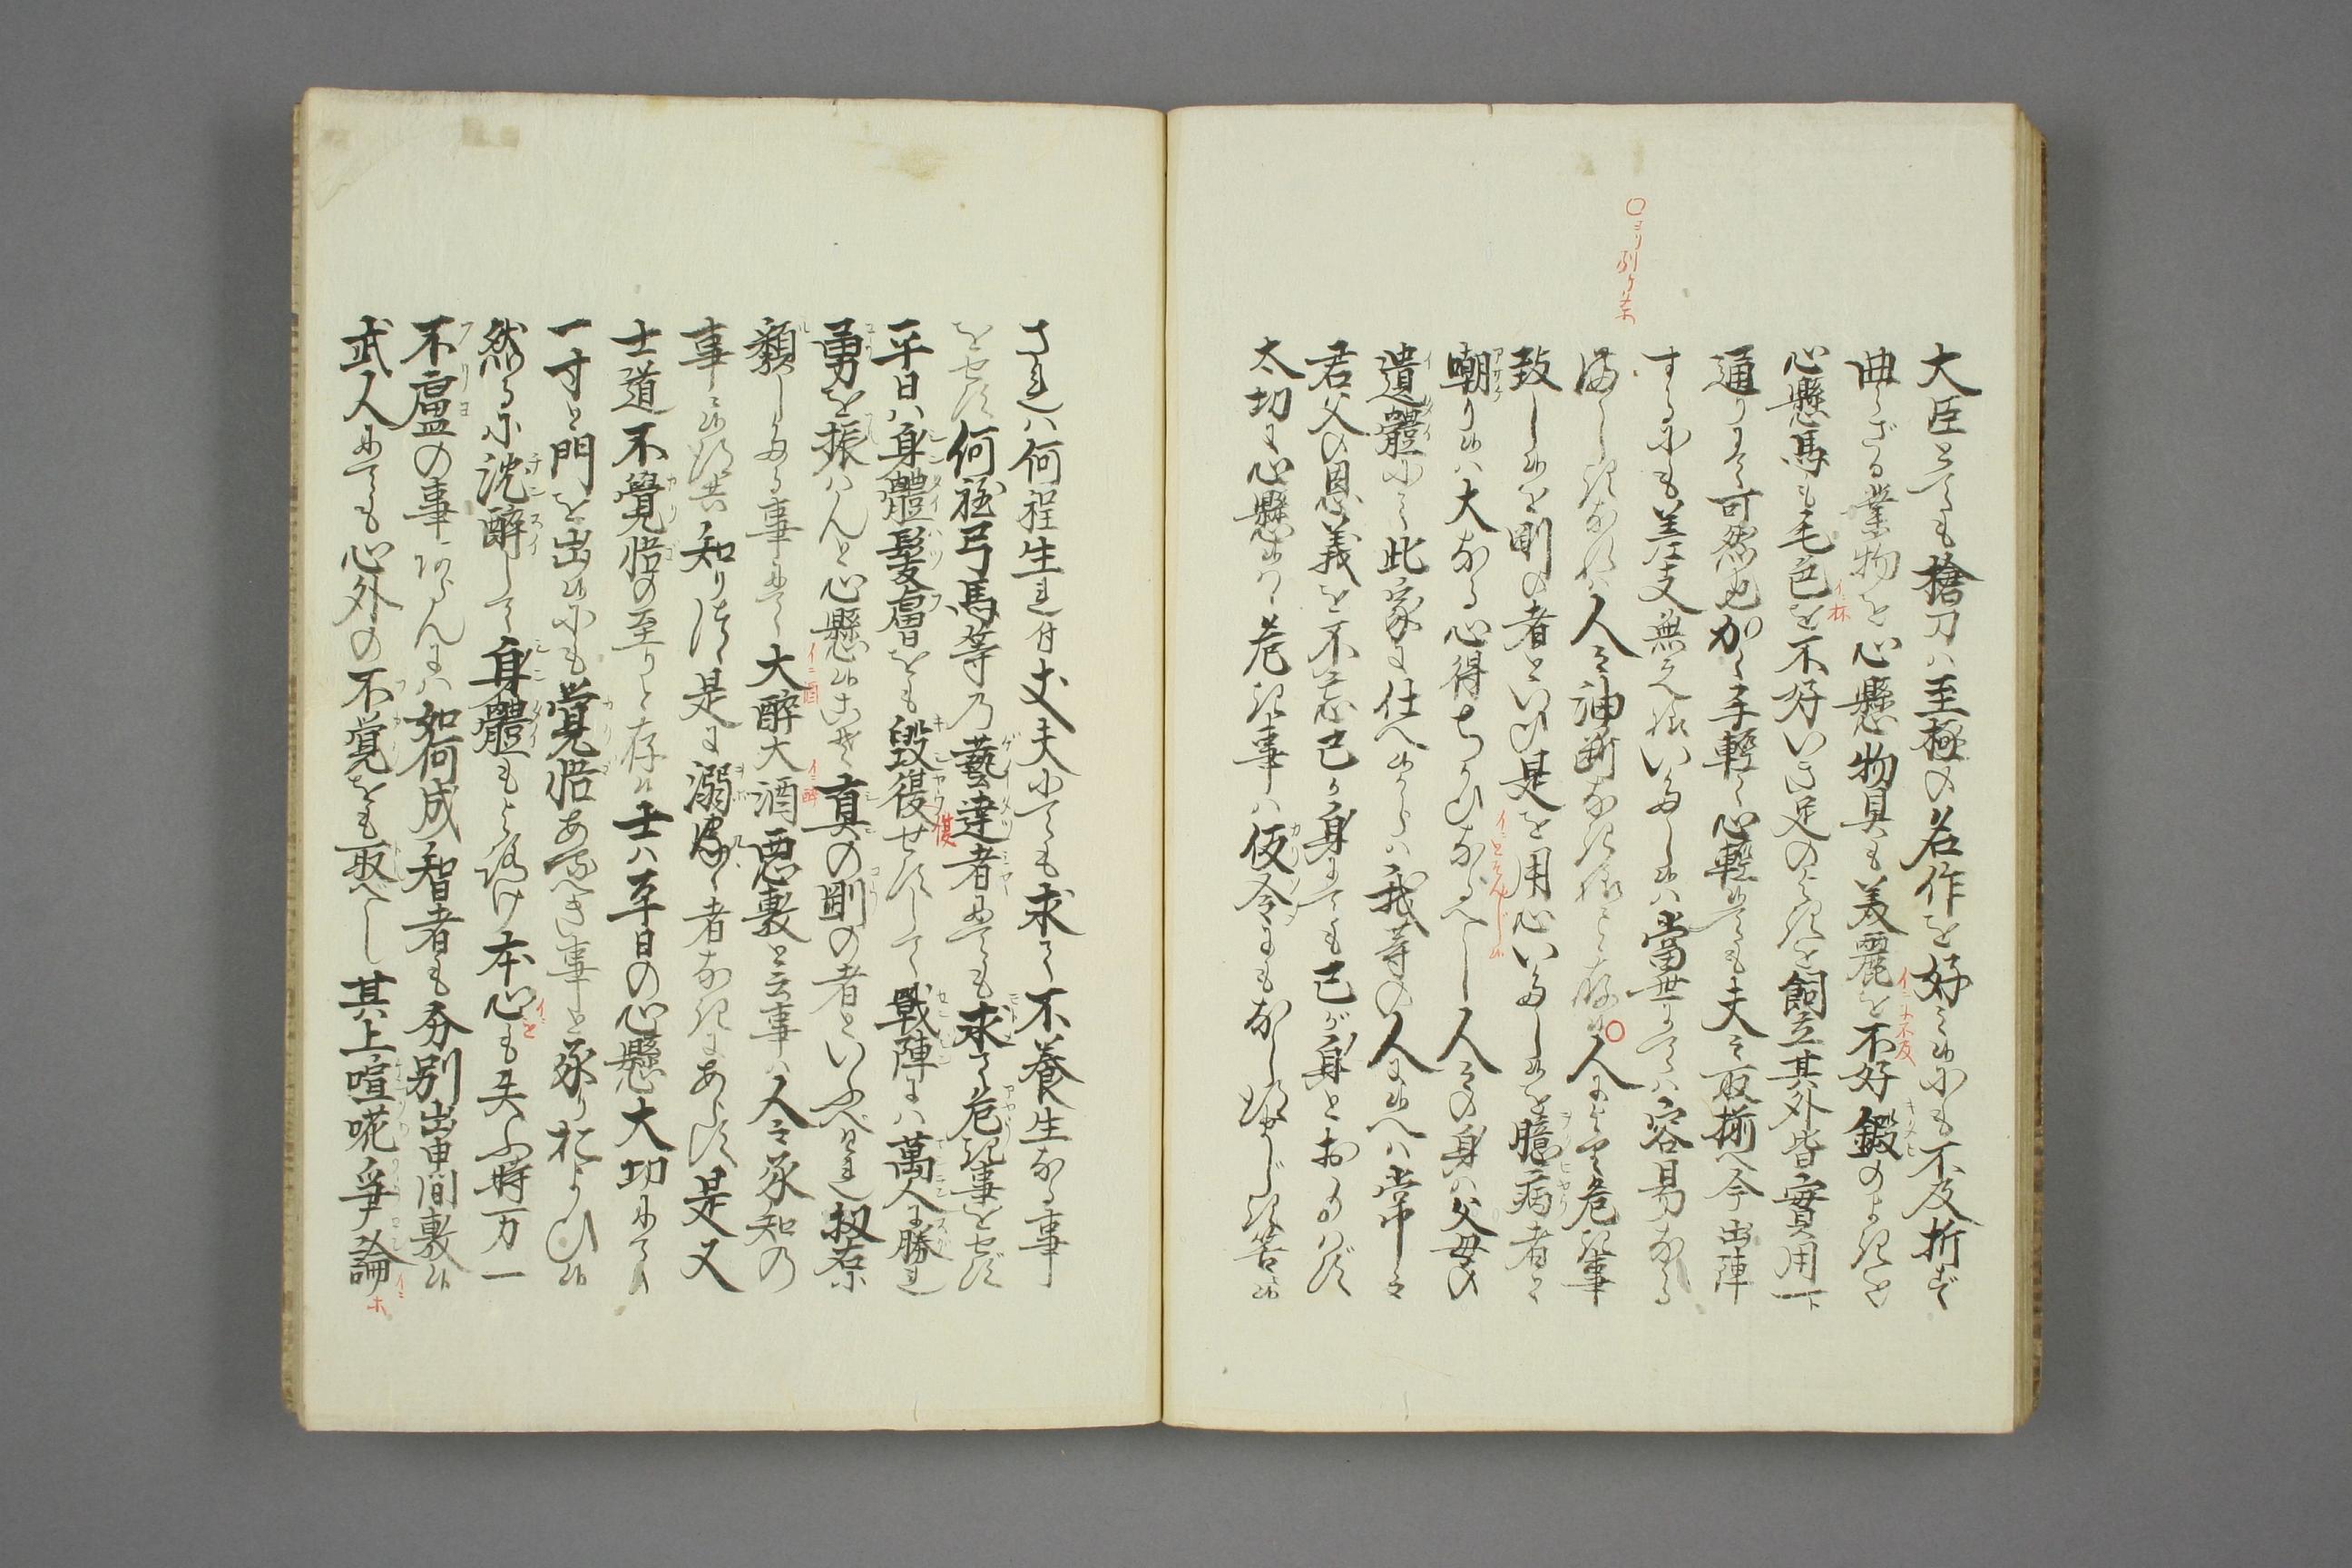 大臣とても鎗刀ハ至極の名作を好ミ候にも不及折ず
曲らざる業物を心懸物具も美麗を不好鍛のよきを
心懸馬も毛色を不好いき足のよきを飼立其外皆実用一ト
通りにて可然也かく手軽く心軽候ても夫々取揃へ今出陣
するにも差支無之様いたし候ハ当世にてハ容易なる
間しきなれハ人々油断なき様に存候人により危き事
致し候を剛の者といひ是を用心いたし候を臆病者と
嘲り候ハ大なる心得ちかひなるへし人々の身ハ父母の
遺體にて此家に仕へ候からハ我等の人に候へハ常々
君父の恩義を不忘己か身にても己が身とおもハず
太切に心懸候ハヽ危き事ハ仮令にもなし得ましき筈ニ候
〇ヨリ別ケ条
イニ林
イニ不及
イニとぞんじ候
されハ何程生れ付丈夫にても求て不養生なる事
をせず何程弓馬等乃藝達者にても求て危き事をせず
平日ハ身體髪膚をも毀復せずして戦陣にハ萬人に勝れ
勇を振ハんと心懸候こそ真の剛の者といふべけれ扨若
類したる事にて大醉大酒悪敷と云事ハ人々承知の
事ニ候得共知り傍是に溺るヽ者なきにあらず是又
士道不覺悟の至りと存候士ハ平日の心懸大切にて候
一寸と門を出候にも覚悟あるへき事と承りおよひ候
然るに沈醉して身體もよろけ本心も失ふ時万一
不慮の事あらんにハ如何成智者も分別出申間敷候
武人にても心外の不覚をも取べし其上喧嘩争論
復
イニ酒
イニ醉
イニを
イニホ